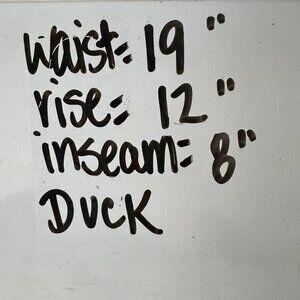 waist: 19"
rise: 12"
inseam: 8"
DUCK